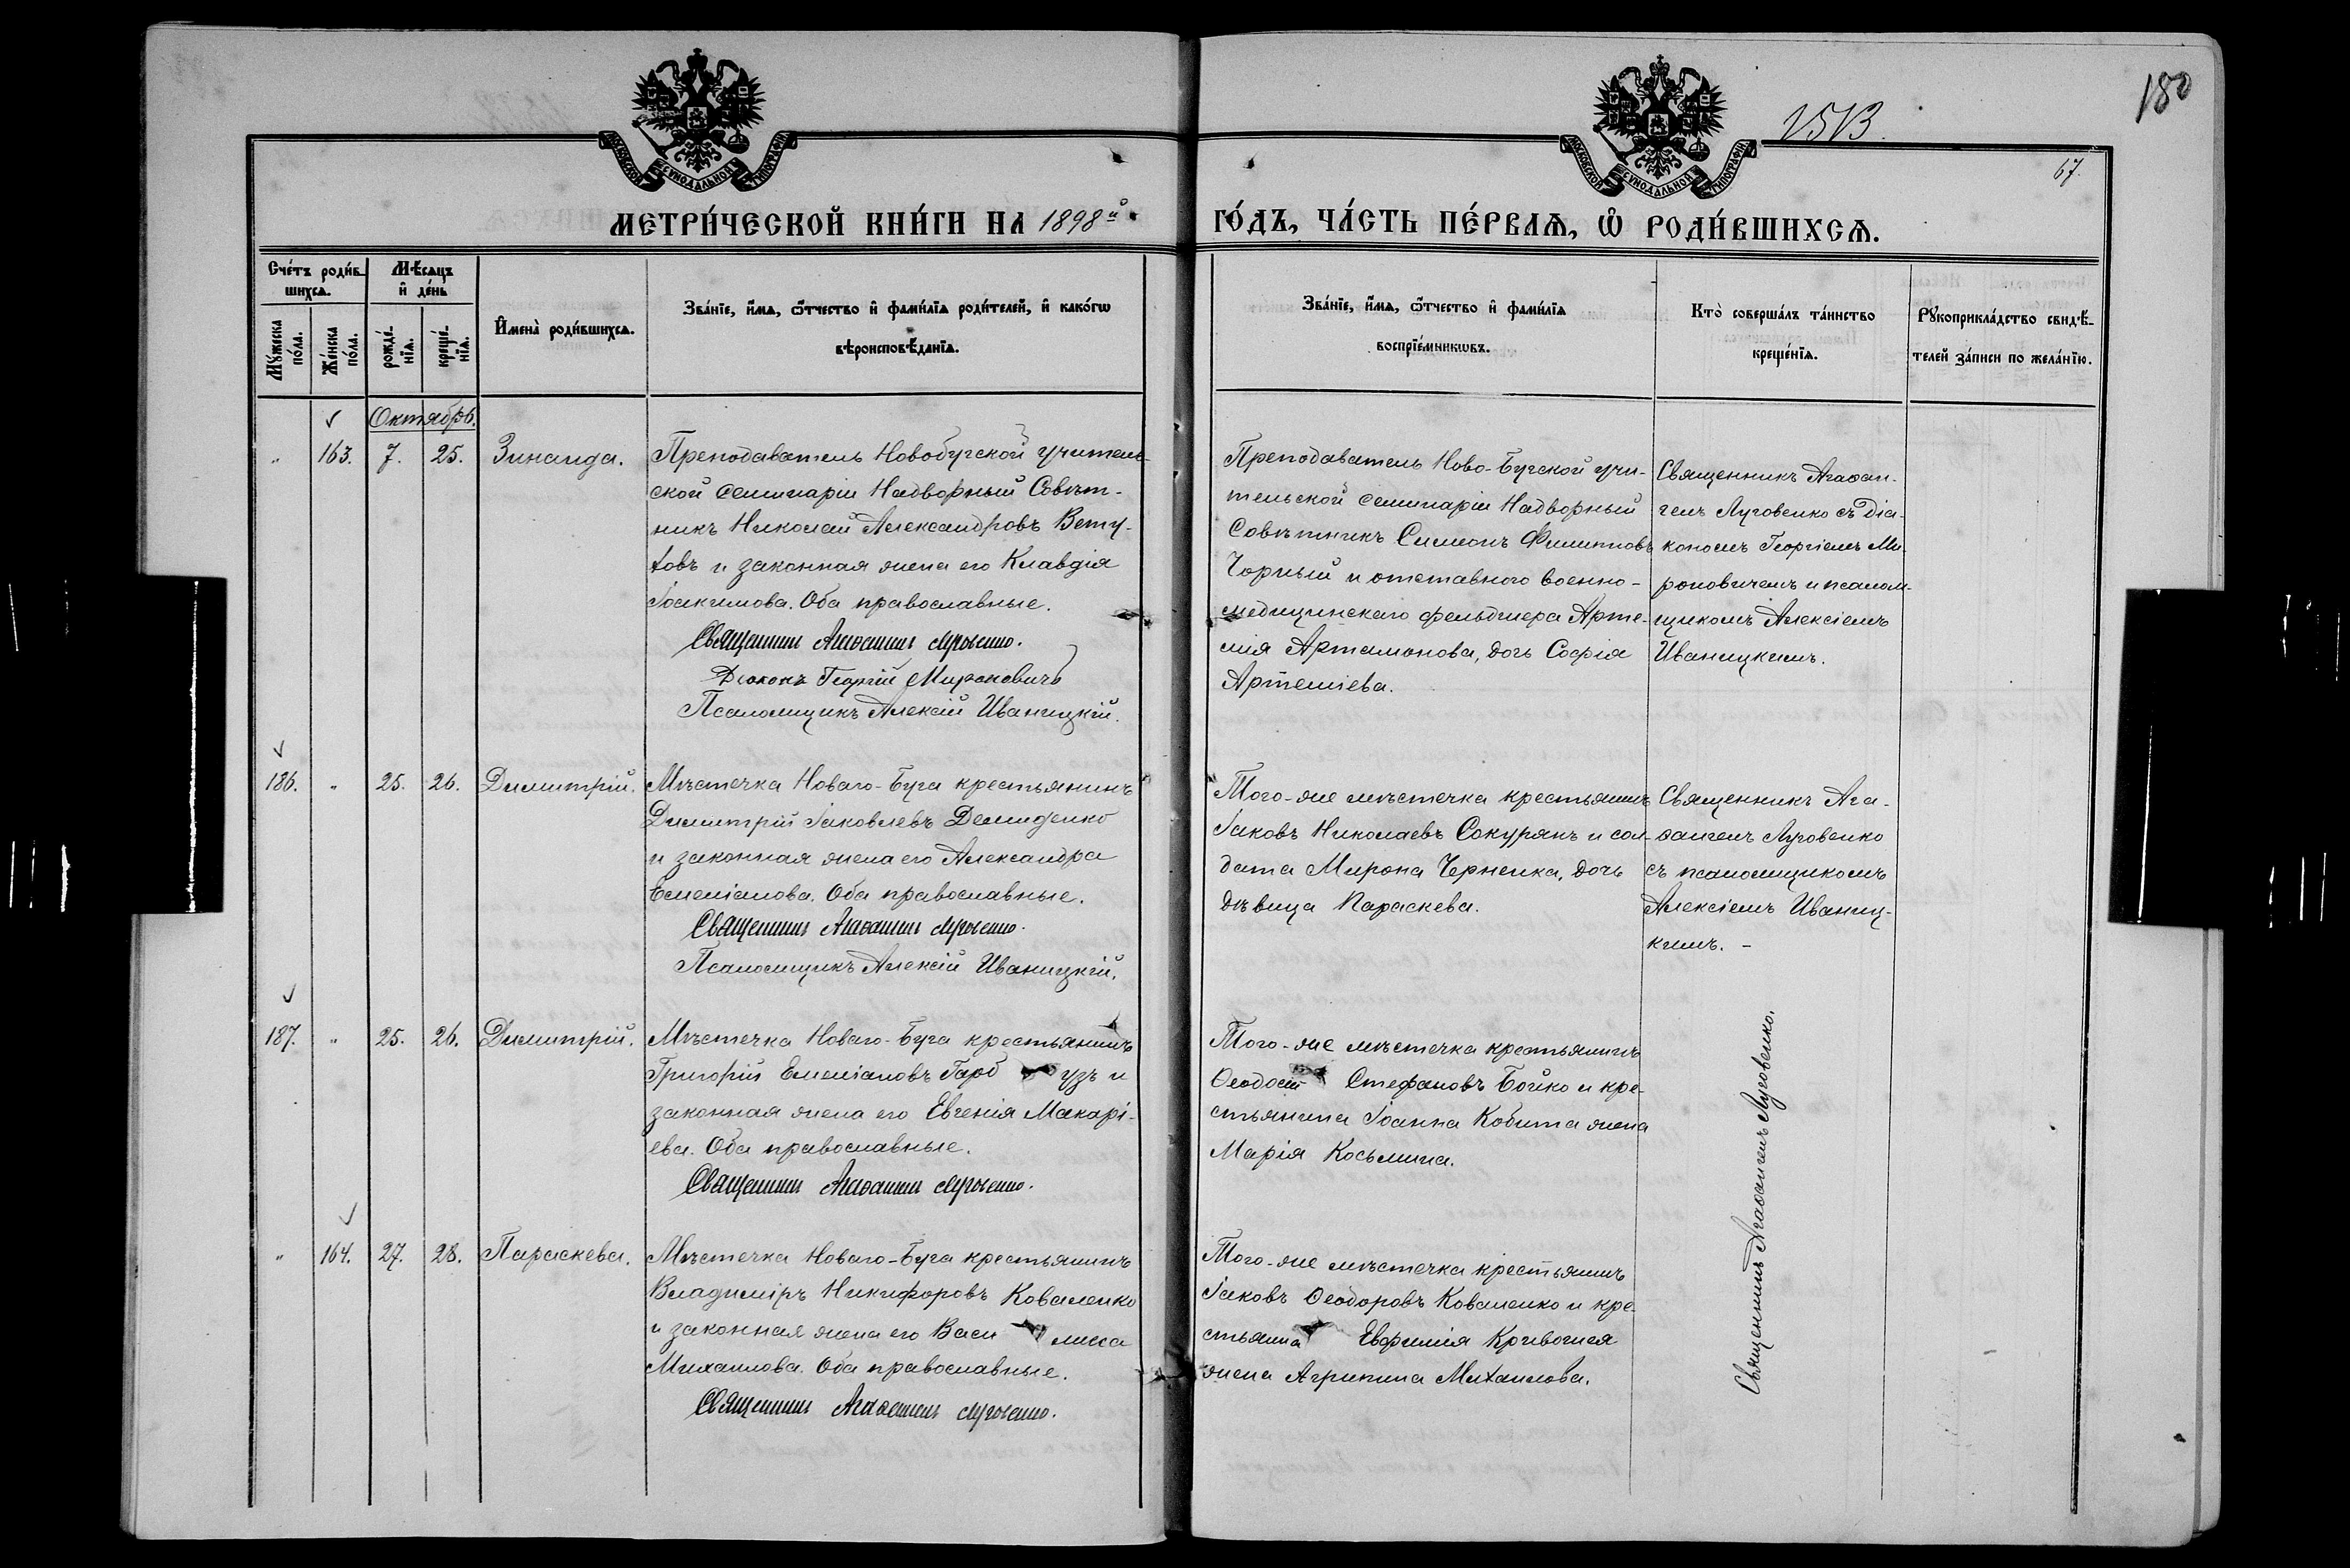 180
1513.
67.
МОСКОВСКОЙ СѴНОДАЛЬНОЙ ТИПОГРАФІИ
МОСКОВСКОЙ СѴНОДАЛЬНОЙ ТИПОГРАФІИ
МЕТРИ́ЧЕСКОЙ КНИ́ГИ НА 1898й
ГО́ДЪ, ЧА́СТЬ ПЕ́РВАѦ, Ѿ РОДИ́ВШИХСѦ.
Сче́тъ роди́в-
шихсѧ.
Мѣ́сѧцъ
и҆ де́нь
Мꙋ́жеска
по́ла.
Же́нска
по́ла.
рожде́-
нїѧ.
креще́-
нїѧ.
И҆мена̀ роди́вшихсѧ.
Зва́нїе, и҆́мѧ, ѻ҆́тчество и҆ фами́лїѧ роди́телей, и҆ како́гѡ
вѣроисповѣ́данїѧ.
Зва́нїе, и҆́мѧ, ѻ҆́тчество и҆ фами́лїѧ
воспрїе́мникѡвъ.
Кто̀ соверша́лъ та́инство
креще́нїѧ.
Рꙋкоприкла́дство свидѣ́-
телей за́писи по жела́нїю.
Октябрь.
" 163. 7. 25. Зинаида.
Преподаватель Новобугской учитель-
ской семинаріи Надворный Совѣт-
никъ Николай Александровъ Вету-
ховъ и законная жена его Клавдія
Іоакимова. Оба православные.
Священникъ Агаѳангелъ Луговенко.
Діаконъ Георгій Мироновичъ
Псаломщикъ Алексій Иваницкій.
Преподаватель Ново-Бугской учи-
тельской семинаріи Надворный
Совѣтникъ Симеонъ Филипповъ
Чорный и отставного военно-
медицинскаго фельдшера Арте-
мія Артамонова, дочь Софія
Артеміева.
Священникъ Агаѳан-
гелъ Луговенко съ діа-
кономъ Георгіемъ Ми-
роновичемъ и псалом-
щикомъ Алексіемъ
Иваницкимъ.
186. " 25. 26. Димитрій.
Мѣстечка Новаго-Буга крестьянинъ
Димитрій Іаковлевъ Демиденко
и законная жена его Александра
Емеліанова. Оба православные.
Священникъ Агаѳангелъ Луговенко.
Псаломщикъ Алексій Иваницкій.
Того-же мѣстечка крестьянинъ
Іаковъ Николаевъ Сокурянъ и сол-
дата Мирона Черненка, дочь
дѣвица Параскева.
Священникъ Ага-
ѳангелъ Луговенко
съ псаломщикомъ
Алексіемъ Иваниц-
кимъ. -
187. " 25. 26. Димитрій.
Мѣстечка Новаго-Буга крестьянинъ
Григорій Емеліановъ Гарбузъ и
законная жена его Евгенія Макарі-
ева. Оба православные.
Священникъ Агаѳангелъ Луговенко.
Того-же мѣстечка крестьянинъ
Ѳеодосій Стефановъ Бойко и кре-
стьянина Іоанна Кобита жена
Марія Косьмина.
" 164. 27. 28. Параскева.
Мѣстечка Новаго-Буга крестьянинъ
Владиміръ Никифоровъ Коваленко
и законная жена его Василисса
Михаилова. Оба православные.
Священникъ Агаѳангелъ Луговенко.
Того-же мѣстечка крестьянинъ
Іаковъ Ѳеодоровъ Коваленко и кре-
стьянина Евфимія Кривошея
жена Агрипина Михаилова.
Священникъ Агаѳангелъ Луговенко.